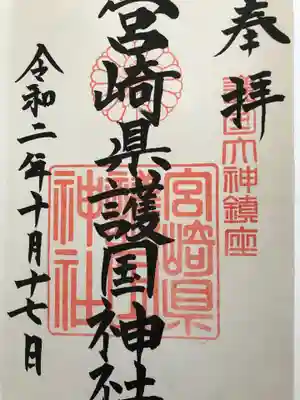 奉拝
宮崎県護国神社
令和二年十月十七日
宮崎県
神社
大神鎮座